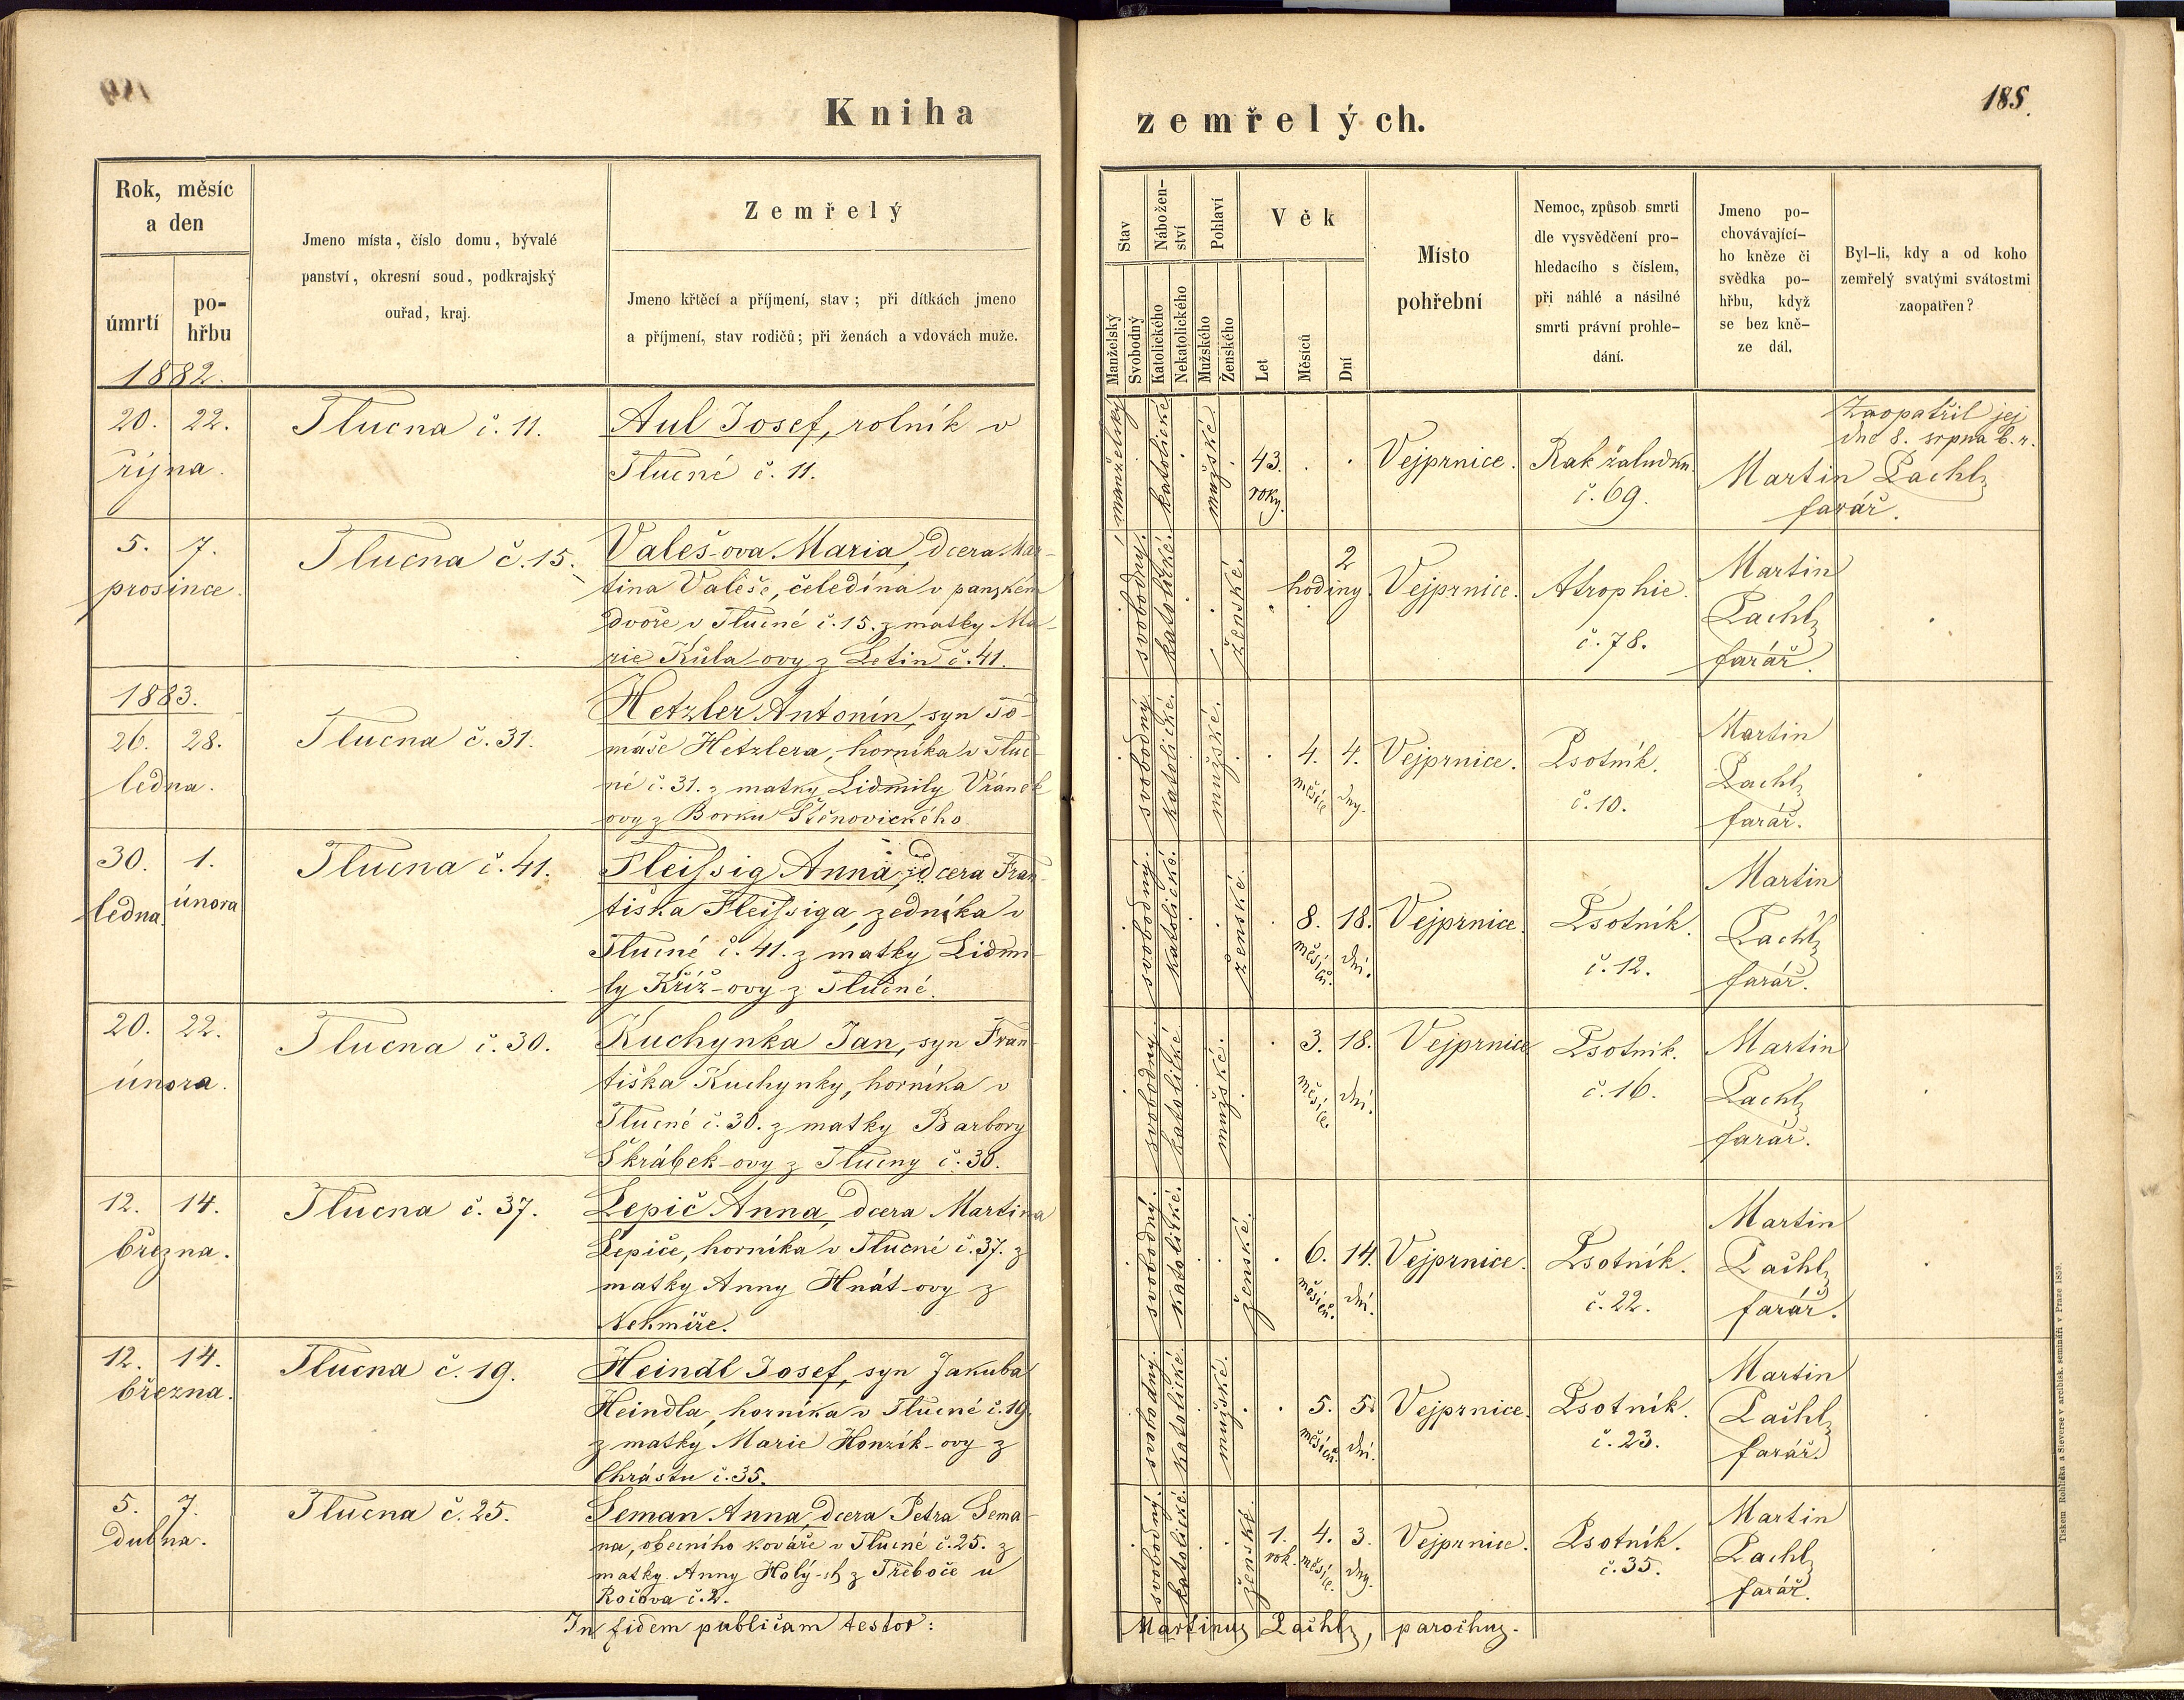 Kniha
zemřelých.
185.
Rok, měsíc
a den
úmrtí
po-
hřbu
1882.
Jmeno místa, číslo domu, bývalé
panství, okresní soud, podkrajský
ouřad, kraj.
Zemřelý
Jmeno křtěcí a příjmení, stav; při dítkách jmeno
a příjmení, stav rodičů; při ženách a vdovách muže.
Stav
Nábožen-
ství
Pohlaví
Věk
Manželský
Svobodný
Katolického
Nekatolického
Mužského
Ženského
Let
Měsíců
Dní
Místo
pohřební
Nemoc, způsob smrti
dle vysvědčení pro-
hledacího s číslem,
při náhlé a násilné
smrti právní prohle-
dání.
Jmeno po-
chovávající-
ho kněze či
svědka po-
hřbu, když
se bez kně-
ze dál.
Byl-li, kdy a od koho
zemřelý svatými svátostmi
zaopatřen?
20. 22.
října.
Tlucna č. 11.
Aul Josef, rolník v
Tlucné č. 11.
manželský
katolické
mužské
43.
roky.
Vejprnice.
Rak žaludku.
č. 69.
Zaopatřil jej
dne 8. srpna b. r.
Martin Lachl,
farář.
5. 7.
prosince.
Tlucna č. 15.
Valeš-ova Maria, dcera Mar-
tina Valeše, čeledína v panském
dvoře v Tlucné č. 15. z matky Ma-
rie Kůla-ovy z Letin č. 41.
svobodný.
katolické.
ženské.
2
hodiny.
Vejprnice.
Atrophie.
č. 78.
Martin
Lachl,
farář.
1883.
26. 28.
ledna.
Tlucna č. 31.
Hetzler Antonín, syn To-
máše Hetzlera, horníka v Tluc-
né č. 31. z matky Lidmily Vránek
ovy z Borku Štěnovického
svobodný.
katolické.
mužské.
4. 4.
měsíce dny.
Vejprnice.
Psotník.
č. 10.
Martin
Lachl,
farář.
30. 1.
ledna února
Tlucna č. 41.
Fleissig Anna, dcera Fran-
tiška Fleissiga, zedníka v
Tlucné č. 41. z matky Lidmi-
ly Kříž-ovy z Tlučné.
svobodný.
katolické.
ženské.
8. 18.
měsíců. dní.
Vejprnice.
Psotník.
č. 12.
Martin
Lachl,
farář.
20. 22.
února.
Tlucna č. 30.
Kuchynka Jan, syn Fran-
tiška Kuchynky, horníka v
Tlucné č. 30. z matky Barbory
Škrábek-ovy z Tlucny č. 30.
svobodný
katolické
mužské.
3. 18.
měsíce. dní.
Vejprnice
Psotník.
č. 16.
Martin
Lachl,
farář.
12. 14.
března.
Tlucna č. 37.
Lepič Anna, dcera Martina
Lepiče, horníka v Tlucné č. 37. z
matky Anny Hnát-ovy z
Nekmíře.
svobodný.
katolické.
ženské.
6. 14.
měsíců. dní.
Vejprnice.
Psotník.
č. 22.
Martin
Lachl,
farář.
12. 14.
března.
Tlucna č. 19.
Heindl Josef, syn Jakuba
Heindla, horníka v Tlucné č. 19.
z matky Marie Honzík-ovy z
Chrástu č. 35.
svobodný.
katolické
mužské.
5. 5.
měsíců. dní.
Vejprnice.
Psotník.
č. 23.
Martin
Lachl,
farář.
5. 7.
dubna.
Tlucna č. 25.
Seman Anna, dcera Petra Sema-
na, obecního kováře v Tlucné č. 25. z
matky Anny Holý-ch z Třeboče u
Ročova č. 2.
svobodný.
katolické.
ženské.
1. 4. 3.
rok. měsíce. dny.
Vejprnice.
Psotník.
č. 35.
Martin
Lachl,
farář.
In fidem publicam testor:
Martinus Lachl, parochus.
Tiskem Rohlíčka a Sieverse v arcibisk. semináři v Praze 1859.